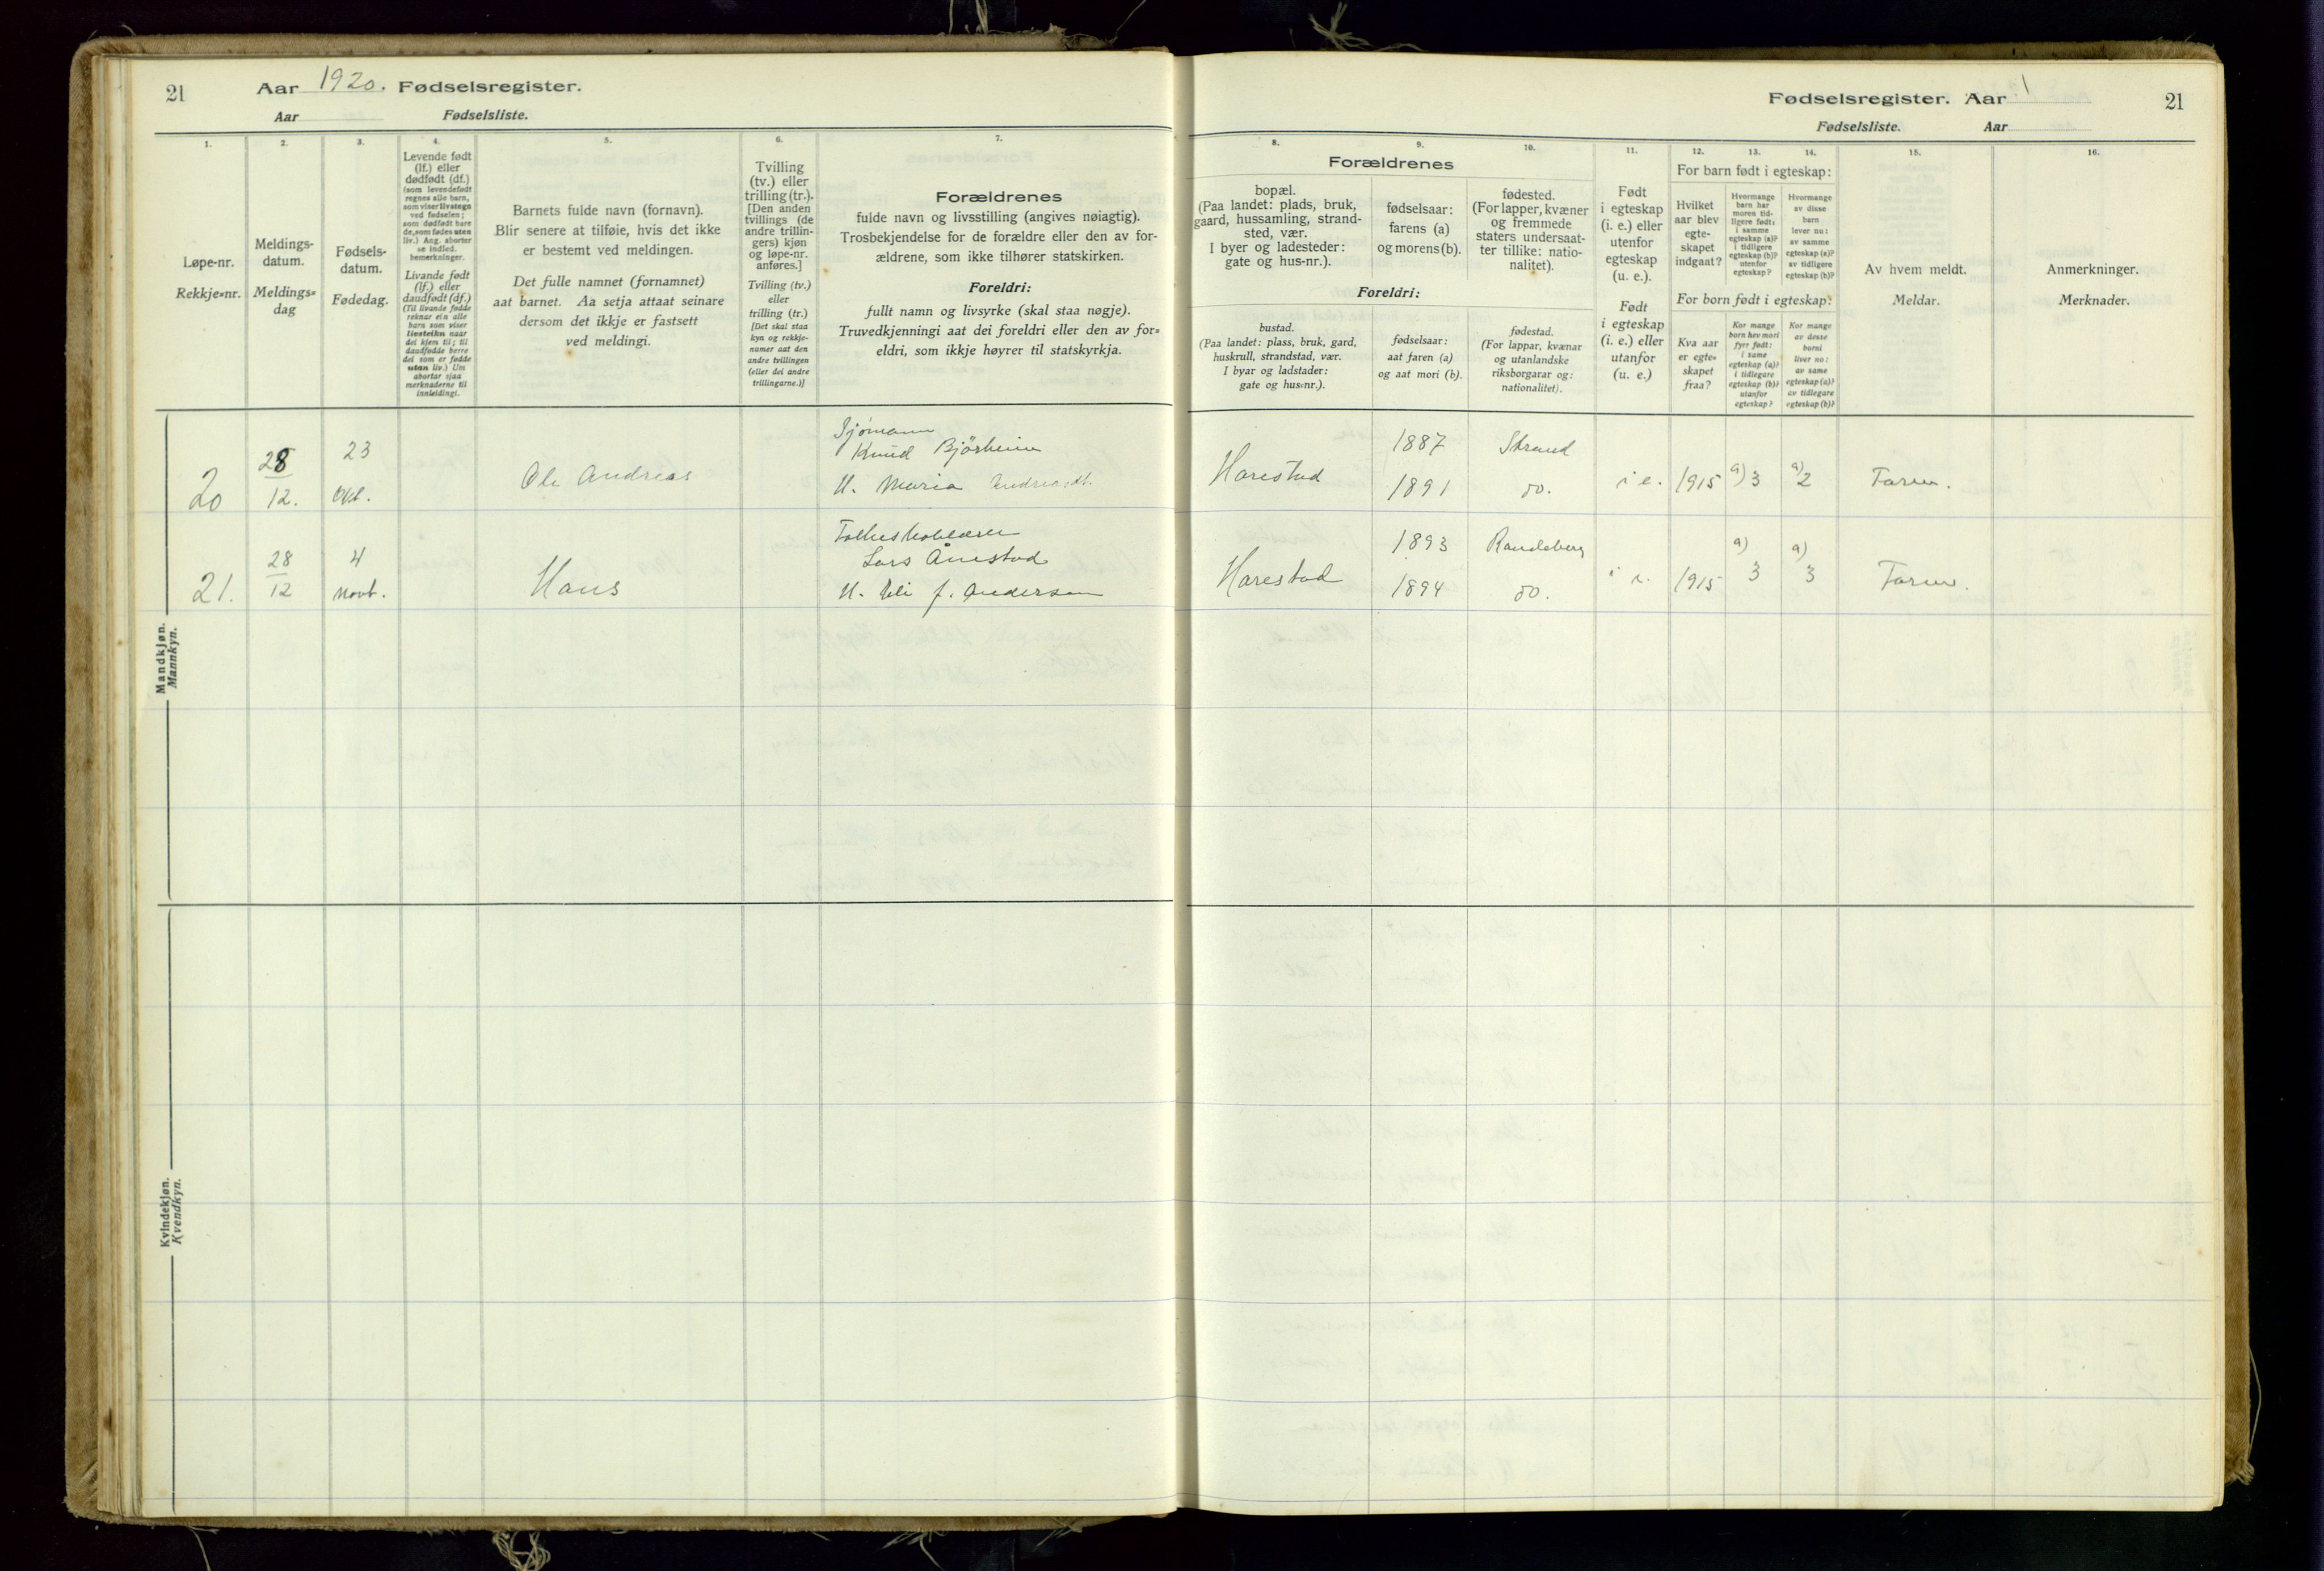 21
Aar 1920. Fødselsregister.
Aar Fødselsliste.
1.
Løpe-nr.
Rekkje=nr.
2.
Meldings-
datum.
Meldings=
dag
3.
Fødsels-
datum.
Fødedag.
4.
Levende født
(lf.) eller
dødfødt (df.)
(som levendefødt
regnes alle barn,
som viser livstegn
ved fødselen;
som dødfødt bare
de, som fødes uten
liv.) Ang. aborter
se indled.
bemerkninger.
Livande født
(lf.) eller
daudfødt (df.)
(Til livande fødde
reknar ein alle
barn som viser
livsteikn naar
dei kjem til; til
daudfødde berre
dei som er fødde
utan liv.) Um
abortar sjaa
merknaderne til
innleidingi.
5.
Barnets fulde navn (fornavn).
Blir senere at tilføie, hvis det ikke
er bestemt ved meldingen.
Det fulle namnet (fornamnet)
aat barnet. Aa setja attaat seinare
dersom det ikkje er fastsett
ved meldingi.
6.
Tvilling
(tv.) eller
trilling (tr.).
[Den anden
tvillings (de
andre trillin-
gers) kjøn
og løpe-nr.
anføres.]
Tvilling (tv.)
eller
trilling (tr.)
[Det skal staa
kyn og rekkje-
numer aat den
andre tvillingen
(eller dei andre
trillingarne.)]
7.
Forældrenes
fulde navn og livsstilling (angives nøiagtig).
Trosbekjendelse for de forældre eller den av for-
ældrene, som ikke tilhører statskirken.
Foreldri:
fullt namn og livsyrke (skal staa nøgje).
Truvedkjenningi aat dei foreldri eller den av for=
eldri, som ikkje høyrer til statskyrkja.
Fødselsregister. Aar 1
21
Fødselsliste. Aar
8.
Forældrenes
bopæl.
(Paa landet: plads, bruk,
gaard, hussamling, strand-
sted, vær.
I byer og ladesteder:
gate og hus-nr.).
Foreldri:
bustad.
(Paa landet: plass, bruk, gard,
huskrull, strandstad, vær.
I byar og ladstader:
gate og hus=nr.).
9.
fødselsaar:
farens (a)
og morens (b).
fødselsaar:
aat faren (a)
og aat mori (b).
10.
fødested.
(For lapper, kvæner
og fremmede
staters undersaat-
ter tillike: natio-
nalitet).
fødestad.
(For lappar, kvænar
og utanlandske
riksborgarar og:
nationalitet).
11.
Født
i egteskap
(i. e.) eller
utenfor
egteskap
(u. e.).
Født
i egteskap
(i. e.) eller
utanfor
(u. e.)
12. 13. 14.
For barn født i egteskap:
Hvilket
aar blev
egte-
skapet
indgaat?
Hvormange
barn har
moren tid-
ligere født:
i samme
egteskap (a)?
i tidligere
egteskap (b)?
utenfor
egteskap?
Hvormange
av disse
barn
lever nu:
av samme
egteskap (a)?
av tidligere
egteskap (b)?
For born født i egteskap:
Kva aar
er egte=
skapet
fraa?
Kor mange
born hev mori
fyrr født:
i same
egteskap (a)?
i tidlegare
egteskap (b)?
utanfor
egteskap?
Kor mange
av desse
borni
liver no:
av same
egteskap (a)?
av tidlegare
egteskap (b)?
15.
Av hvem meldt.
Meldar.
16.
Anmerkninger.
Merknader.
Mandkjøn.
Mannkyn.
20 28/12. 23 Okt. Ole Andreas
Sjømann
Knud Bjørheim
H. Maria Andreasdt.
Harestad 1887 Strand
1891 do. i e. 1915 a) 3 a) 2 Faren.
21. 28/12 4 Novb. Hans
Folkeskolelærer
Lars Ånestad
H. f. Andersen
Harestad 1893 Randeberg
1894 do. i e. 1915 a) 3 a) 3 Faren.
Kvindekjøn.
Kvendkyn.